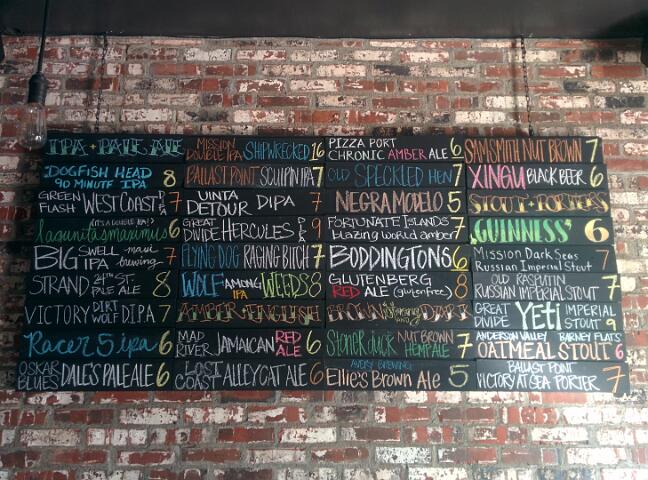 IPA + PALE ALE
DOGFISH HEAD
90 MINUTE IPA 8
GREEN FLASH WEST COAST IPA 7
IT'S A DOUBLE IPA!?
lagunitas maximus 6
BIG SWELL IPA maui brewing 7
STRAND 24TH ST PALE ALE 8
VICTORY DIRT WOLF DIPA 7
Racer 5 ipa 6
OSKAR BLUES DALE'S PALE ALE 6
MISSION DOUBLE IPA SHIPWRECKED 16
BALLAST POINT SCULPIN IPA 7
UINTA DETOUR DIPA 7
GREAT DIVIDE HERCULES DIPA 9
FLYING DOG RAGING BITCH 7
WOLF AMONG WEEDS IPA 8
MAD RIVER JAMAICAN RED ALE 6
LOST COAST ALLEYCAT ALE 6
PIZZA PORT
CHRONIC AMBER ALE 6
OLD SPECKLED HEN 7
NEGRA MODELO 5
FORTUNATE ISLANDS
blazing world amber 7
BODDINGTONS 6
GLUTENBERG
RED ALE (gluten free) 8
BROWN DARK
Stone duck NUT BROWN HEMP ALE 7
AVERY BREWING
Ellie's Brown Ale 5
SAMSMITH NUT BROWN 7
XINGU BLACK BEER 6
STOUT + PORTERS
GUINNESS' 6
Mission Dark Seas
Russian Imperial Stout 7
OLD RASPUTIN
RUSSIAN IMPERIAL STOUT 7
GREAT DIVIDE YETI IMPERIAL STOUT 9
ANDERSON VALLEY BARNEY FLATS
OATMEAL STOUT 6
BALLAST POINT
VICTORY AT SEA PORTER 7